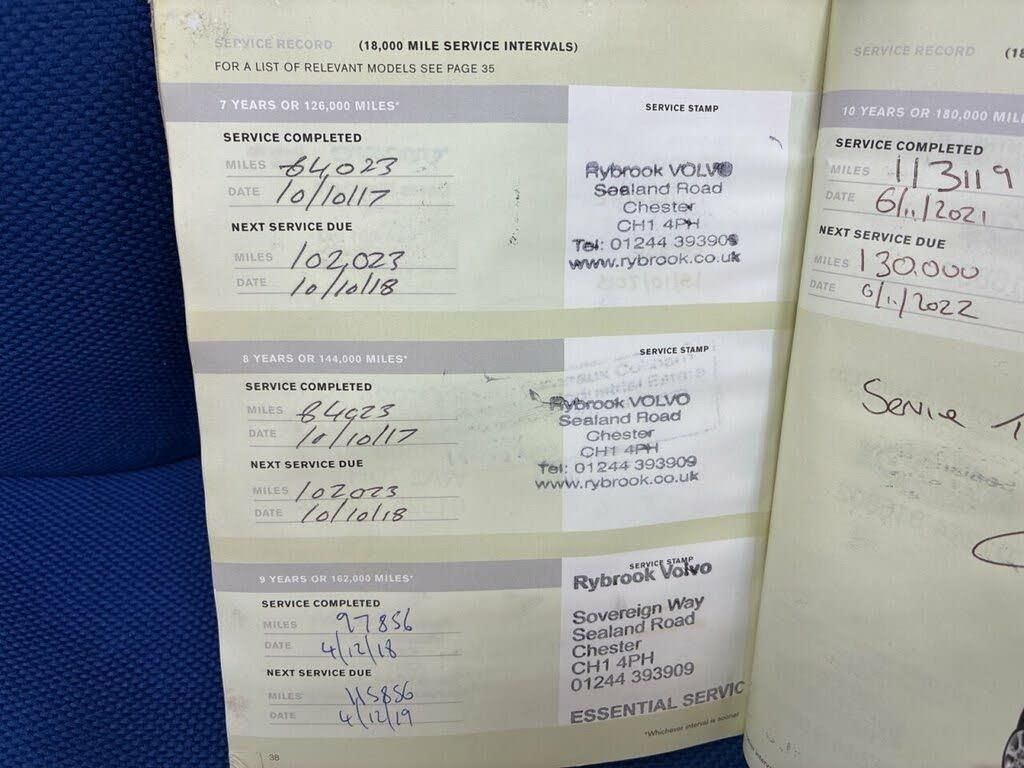 SERVICE RECORD (18,000 MILE SERVICE INTERVALS)
FOR A LIST OF RELEVANT MODELS SEE PAGE 35
7 YEARS OR 126,000 MILES*
SERVICE STAMP
SERVICE COMPLETED
MILES 84,023
DATE 10/10/17
NEXT SERVICE DUE
MILES 102,023
DATE 10/10/18
Rybrook VOLVO
Sealand Road
Chester
CH1 4PH
Tel: 01244 393909
www.rybrook.co.uk
8 YEARS OR 144,000 MILES*
SERVICE STAMP
SERVICE COMPLETED
MILES 84023
DATE 10/10/17
NEXT SERVICE DUE
MILES 102,023
DATE 10/10/18
Rybrook VOLVO
Sealand Road
Chester
CH1 4PH
Tel: 01244 393909
www.rybrook.co.uk
9 YEARS OR 162,000 MILES*
SERVICE STAMP
SERVICE COMPLETED
MILES 97856
DATE 4/12/18
NEXT SERVICE DUE
MILES 115856
DATE 4/12/19
Rybrook Volvo
Sovereign Way
Sealand Road
Chester
CH1 4PH
01244 393909
ESSENTIAL SERVIC
*Whichever interval is sooner
38
SERVICE RECORD (18
10 YEARS OR 180,000 MIL
SERVICE COMPLETED
MILES 113119
DATE 6/11/2021
NEXT SERVICE DUE
MILES 130.000
DATE 6/11/2022